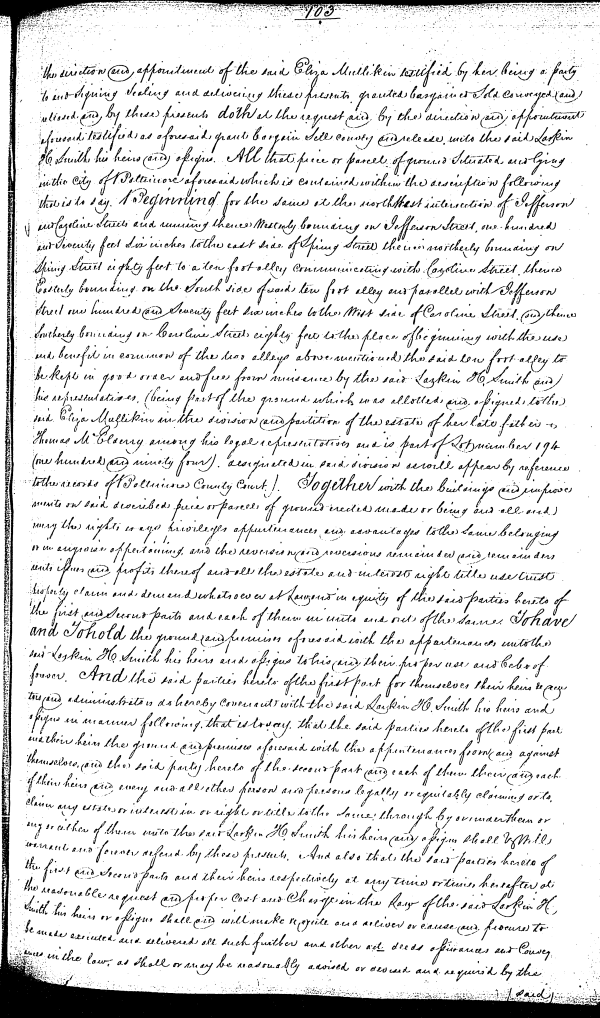 103
the direction and appointment of the said Eliza Mullikin testified by her being a party
to and signing sealing and delivering these presents, granted bargained sold conveyed and
released and by these presents doth at the request and by the direction and appointment
aforesaid testified as aforesaid grant bargain sell convey and release unto the said Larkin
H. Smith his heirs and assigns. All that piece or parcel of ground situated and lying
in the City of Baltimore aforesaid which is contained within the description following
that is to say. Beginning for the same at the northwest intersection of Jefferson
and Caroline Streets and running thence Westerly bounding on Jefferson Street, one hundred
and Seventy feet six inches to the east side of Spring Street thence northerly bounding on
Spring Street eighty feet to a ten foot alley communicating with Caroline Street, thence
Easterly bounding on the South side of said ten foot alley and parallel with Jefferson
Street one hundred and Seventy feet six inches to the West side of Caroline Street, and thence
Southerly bounding on Caroline Street eighty feet to the place of beginning with the use
and benefit in common of the two alleys above mentioned the said ten foot alley to
be kept in good order and free from nuisance by the said Larkin H. Smith and
his representatives, (being part of the ground which was allotted and assigned to the
said Eliza Mullikin in the division and partition of the estate of her late father
Thomas McElderry among his legal representatives and is part of Lot number 194
(one hundred and ninety four). designated in said division as will appear by reference
to the records of Baltimore County Court.). Together with the buildings and improve
ments on said described piece or parcel of ground erected made or being and all and
every the rights ways privileges appurtenances and advantages to the same belonging
or in anywise appertaining and the reversion and reversions remainder and remainders
rents issues and profits thereof and all the estate and interests right title use trust
property claim and demand whatsoever at Law and in equity of the said parties hereto of
the first and Second parts and each of them in unto and out of the same. To have
and To hold the ground and premises aforesaid with the appurtenances unto the
said Larkin H. Smith his heirs and assigns to his and their proper use and behoof
forever. And the said parties hereto of the first part for themselves their heirs execu
tors and administrators do hereby covenant with the said Larkin H. Smith his heirs and
assigns in manner following, that is to say, that the said parties hereto of the first part
and their heirs the ground and premises aforesaid with the appurtenances from and against
themselves, and the said party hereto of the second part and each of them their and each
of their heirs and every and all other person and persons legally or equitably claiming or to
claim any estate or interest in or right or title to the same, through by or under them or
any or either of them unto the said Larkin H. Smith his heirs and assigns shall & will
warrant and forever defend by these presents. And also that the said parties hereto of
the first and Second parts and their heirs respectively at any time or times hereafter at
the reasonable request and proper Cost and Charge in the Law of the said Larkin H.
Smith his heirs or assigns shall and will make execute and deliver or cause and procure to
be made executed and delivered all such further and other act deeds assurances and Convey
ances in the law, as shall or may be reasonably advised or devised and required by the
(said)